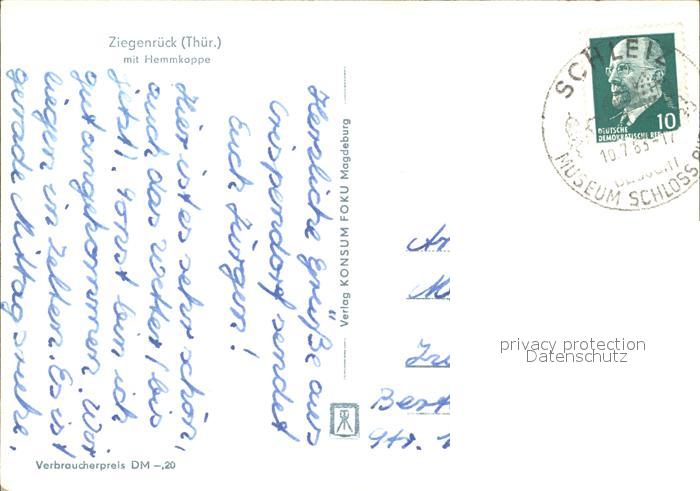 Ziegenrück (Thür.)
mit Hemmkoppe
Herzliche Grüße aus
Crispendorf sendet
Euch Jürgen!
Hier ist es sehr schön,
auch das Wetter (bis
jetzt). Sonst bin ich
gut angekommen. Wir
liegen in Zelten. Es ist
gerade Mittagsruhe.
Verlag KONSUM FOKU Magdeburg
Verbraucherpreis DM –,20
DEUTSCHE
DEMOKRATISCHE REP
10
SCHLEIZ
10.7.63-17
BESUCHT
MUSEUM SCHLOSS
An
Str.
privacy protection
Datenschutz